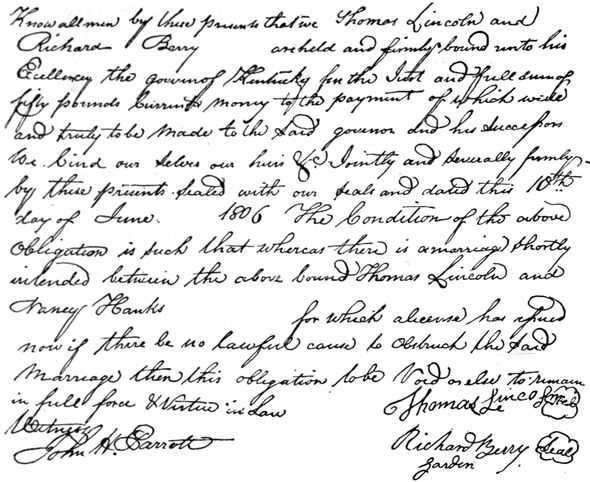 Know all men by these presents that we Thomas Lincoln and
Richard Berry are held and firmly bound unto his
Excellency the governor of Kentucky for the Just and full sum of
fifty pounds Current money to the payment of which well
and truly to be made to the said govenor and his successors
We bind our selves our heirs &c Jointly and severally firmly
by these presents sealed with our seals and dated this 10th
day of June 1806 The Condition of the above
Obligation is such that whereas there is a marriage shortly
intended between the above bound Thomas Lincoln and
Nancy Hanks for which a license has issued
now if there be no lawful cause to obstruct the said
marriage then this obligation to be Void or else to remain
in full force & Virtue in Law
Thomas Lincoln Seal
Witness
John H. Parrott
Richard Berry Seal
Garden